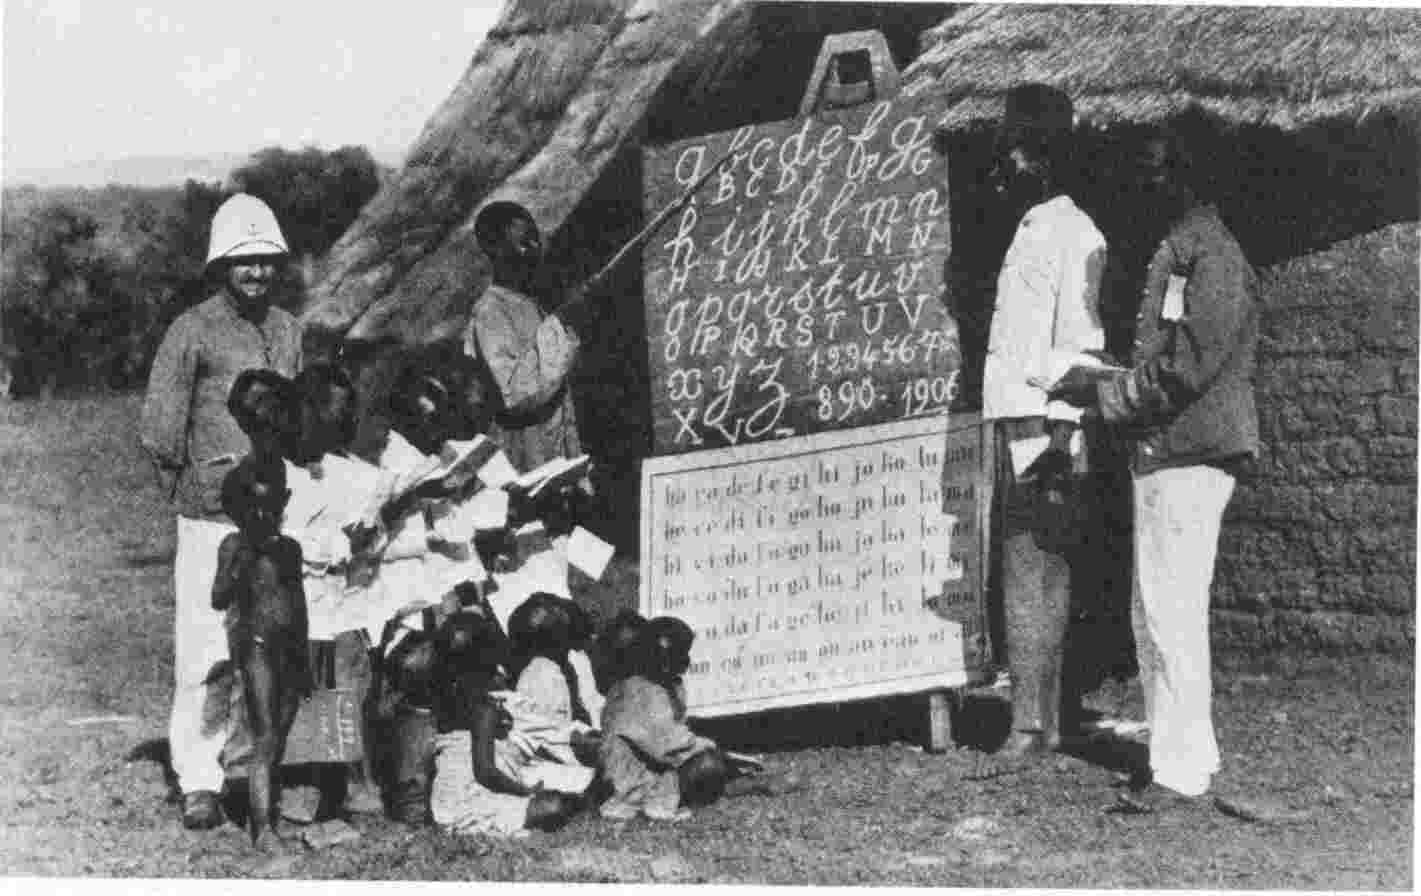 a b c d e f g
A B C D E F G
h i j k l m n
H I J K L M N
o p q r s t u v
O P Q R S T U V
x y z 1234567
X Y Z 890. 1906
ba ca de fe gi hi jo ko lu mu
be ce di fi go ho ju ku la ma
bi ci do fo gu hu ja ka le me
bo co du fu ga ha je ke li mi
u da fa ge he ji ki lo mo